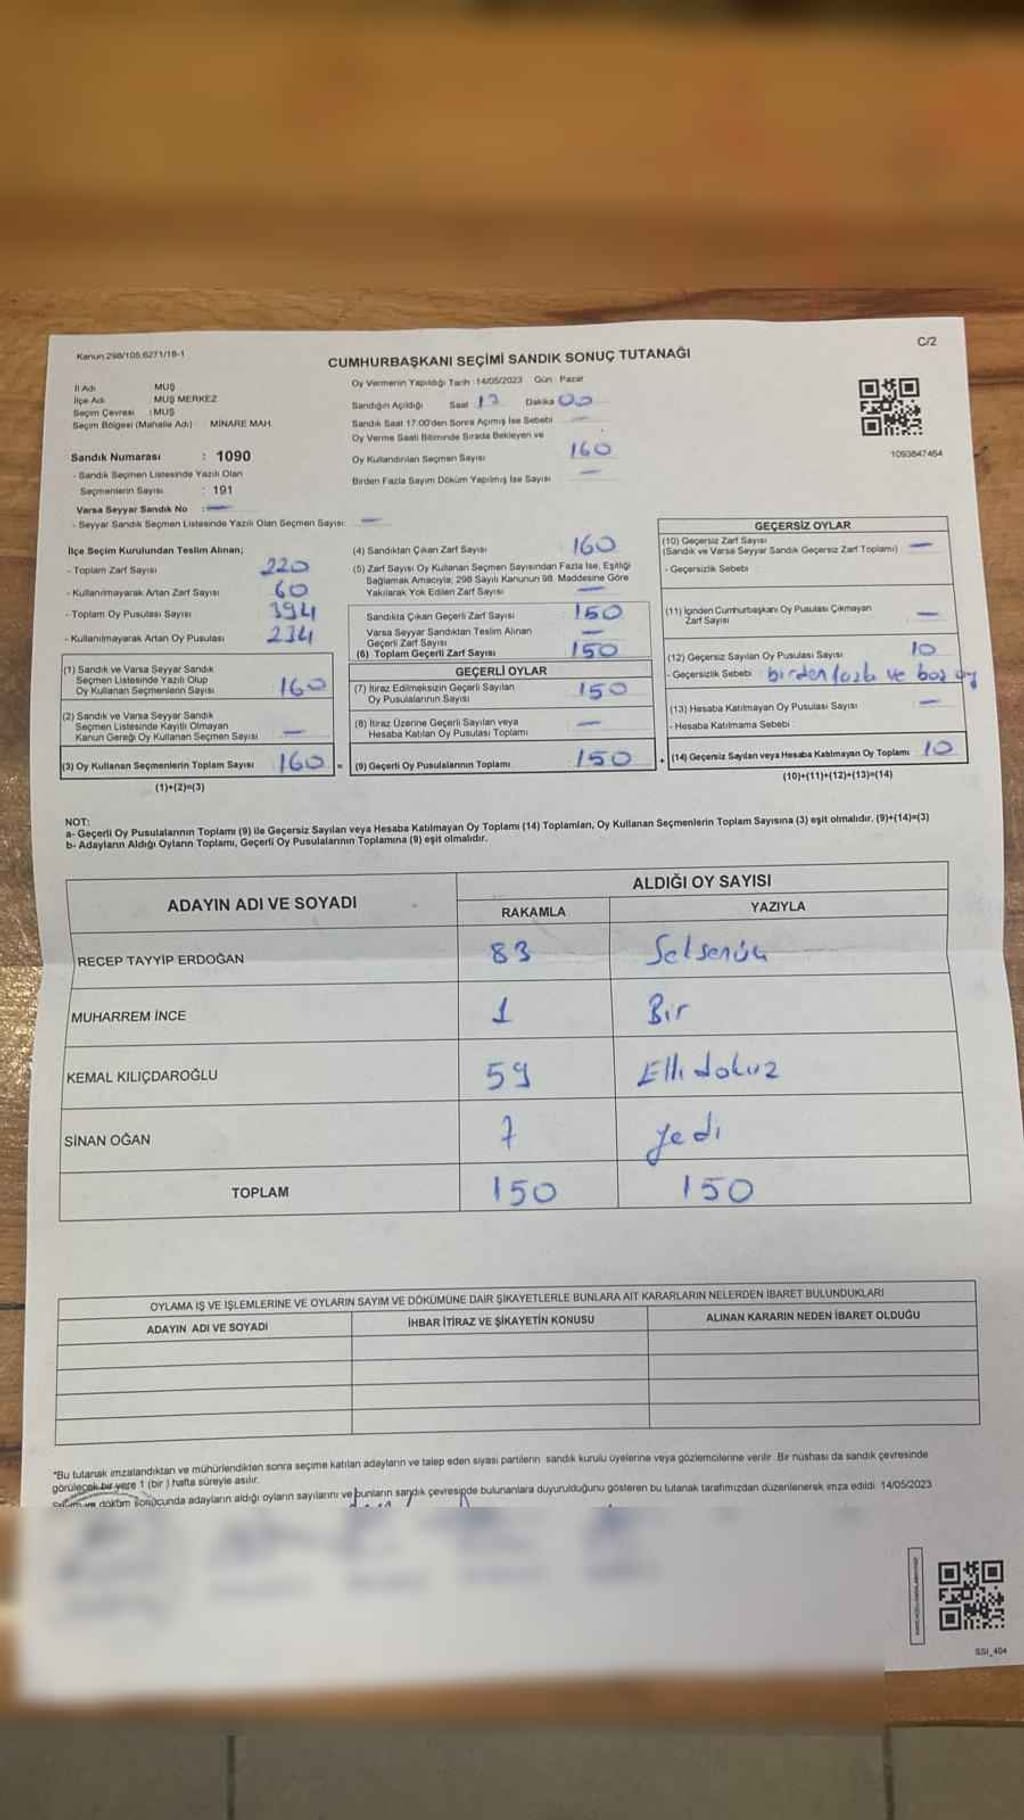 Kanun 298/105.6271/18-1
C/2
CUMHURBAŞKANI SEÇİMİ SANDIK SONUÇ TUTANAĞI
İl Adı MUŞ
İlçe Adı MUŞ MERKEZ
Seçim Çevresi : MUŞ
Seçim Bölgesi (Mahalle Adı) MİNARE MAH.
Sandık Numarası : 1090
- Sandık Seçmen Listesinde Yazılı Olan
Seçmenlerin Sayısı : 191
Varsa Seyyar Sandık No : —
- Seyyar Sandık Seçmen Listesinde Yazılı Olan Seçmen Sayısı: —
Oy Vermenin Yapıldığı Tarih : 14/05/2023 Gün : Pazar
Sandığın Açıldığı Saat 17 Dakika 00
Sandık Saat 17:00'den Sonra Açılmış İse Sebebi —
Oy Verme Saati Bitiminde Sırada Bekleyen ve
Oy Kullandırılan Seçmen Sayısı 160
Birden Fazla Sayım Döküm Yapılmış İse Sayısı —
1093847464
İlçe Seçim Kurulundan Teslim Alınan;
- Toplam Zarf Sayısı 220
- Kullanılmayarak Artan Zarf Sayısı 60
- Toplam Oy Pusulası Sayısı 394
- Kullanılmayarak Artan Oy Pusulası 234
(1) Sandık ve Varsa Seyyar Sandık
Seçmen Listesinde Yazılı Olup
Oy Kullanan Seçmenlerin Sayısı 160
(2) Sandık ve Varsa Seyyar Sandık
Seçmen Listesinde Kayıtlı Olmayan
Kanun Gereği Oy Kullanan Seçmen Sayısı —
(3) Oy Kullanan Seçmenlerin Toplam Sayısı 160 =
(1)+(2)=(3)
(4) Sandıktan Çıkan Zarf Sayısı 160
(5) Zarf Sayısı Oy Kullanan Seçmen Sayısından Fazla İse, Eşitliği
Bağlamak Amacıyla; 298 Sayılı Kanunun 98. Maddesine Göre
Yakılarak Yok Edilen Zarf Sayısı —
Sandıkta Çıkan Geçerli Zarf Sayısı 150
Varsa Seyyar Sandıktan Teslim Alınan
Geçerli Zarf Sayısı —
(6) Toplam Geçerli Zarf Sayısı 150
GEÇERLİ OYLAR
(7) İtiraz Edilmeksizin Geçerli Sayılan
Oy Pusulalarının Sayısı 150
(8) İtiraz Üzerine Geçerli Sayılan veya
Hesaba Katılan Oy Pusulası Toplamı —
(9) Geçerli Oy Pusulalarının Toplamı 150 +
GEÇERSİZ OYLAR
(10) Geçersiz Zarf Sayısı
(Sandık ve Varsa Seyyar Sandık Geçersiz Zarf Toplamı) —
- Geçersizlik Sebebi
(11) İçinden Cumhurbaşkanı Oy Pusulası Çıkmayan
Zarf Sayısı —
(12) Geçersiz Sayılan Oy Pusulası Sayısı 10
- Geçersizlik Sebebi birden fazla ve boş oy
(13) Hesaba Katılmayan Oy Pusulası Sayısı —
- Hesaba Katılmama Sebebi
(14) Geçersiz Sayılan veya Hesaba Katılmayan Oy Toplamı 10
(10)+(11)+(12)+(13)=(14)
NOT:
a- Geçerli Oy Pusulalarının Toplamı (9) ile Geçersiz Sayılan veya Hesaba Katılmayan Oy Toplamı (14) Toplamları, Oy Kullanan Seçmenlerin Toplam Sayısına (3) eşit olmalıdır. (9)+(14)=(3)
b- Adayların Aldığı Oyların Toplamı, Geçerli Oy Pusulalarının Toplamına (9) eşit olmalıdır.
ADAYIN ADI VE SOYADI ALDIĞI OY SAYISI
RAKAMLA YAZIYLA
RECEP TAYYİP ERDOĞAN 83 Selsenüç
MUHARREM İNCE 1 Bir
KEMAL KILIÇDAROĞLU 59 Elli dokuz
SİNAN OĞAN 7 yedi
TOPLAM 150 150
OYLAMA İŞ VE İŞLEMLERİNE VE OYLARIN SAYIM VE DÖKÜMÜNE DAİR ŞİKAYETLERLE BUNLARA AİT KARARLARIN NELERDEN İBARET BULUNDUKLARI
ADAYIN ADI VE SOYADI İHBAR İTİRAZ VE ŞİKAYETİN KONUSU ALINAN KARARIN NEDEN İBARET OLDUĞU
*Bu tutanak imzalandıktan ve mühürlendikten sonra seçime katılan adayların ve talep eden siyasi partilerin sandık kurulu üyelerine veya gözlemcilerine verilir. Bir nüshası da sandık çevresinde
görülecek bir yere 1 (bir) hafta süreyle asılır.
döküm sonucunda adayların aldığı oyların sayılarını ve bunların sandık çevresinde bulunanlara duyurulduğunu gösteren bu tutanak tarafımızdan düzenlenerek imza edildi. 14/05/2023
SSI_404